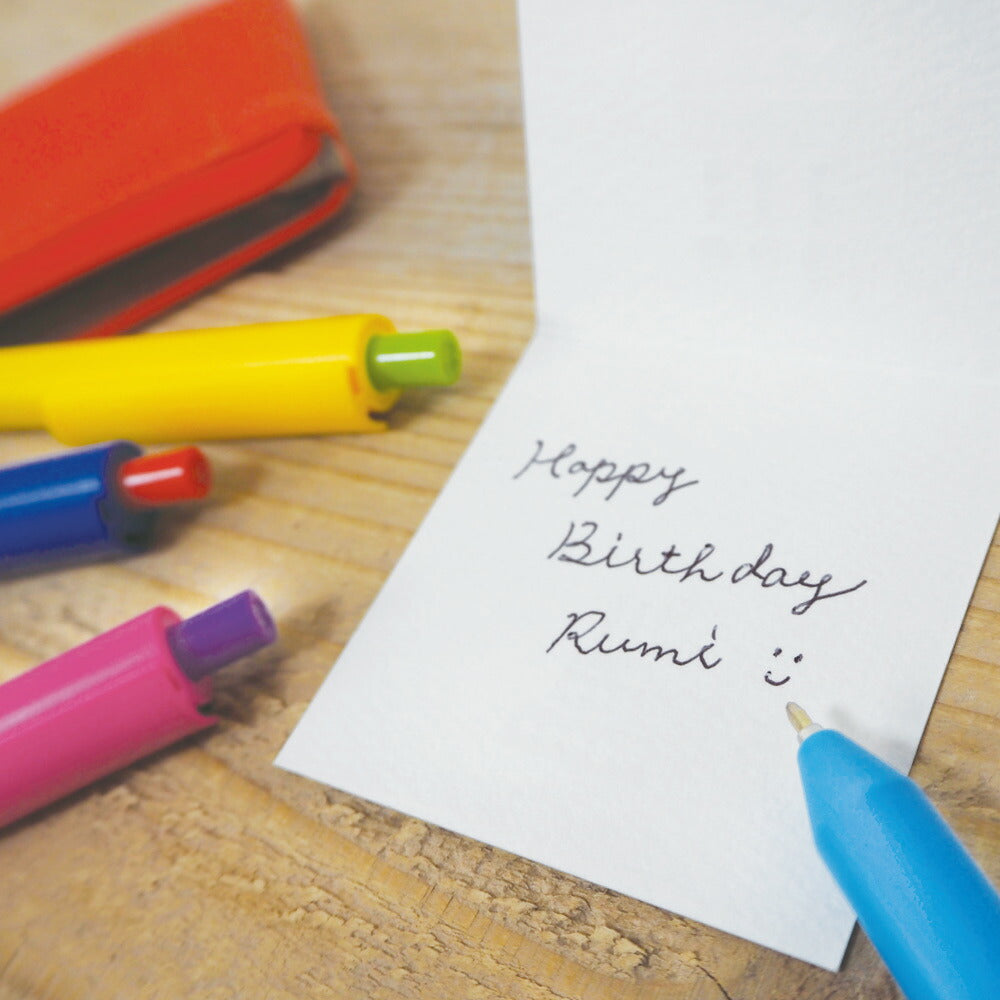 Happy
Birthday
Rumi :)